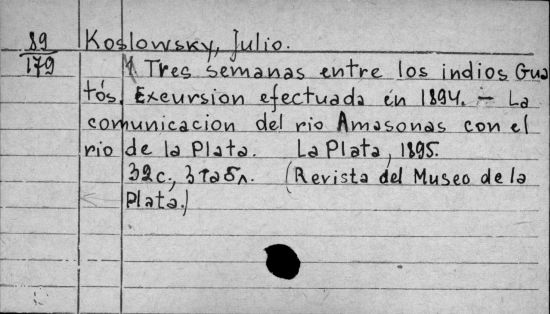 89
179
Koslowsky, Julio.
Tres semanas entre los indios Gua
tós. Excursion efectuada en 1894. — La
comunicacion del rio Amasonas con el
rio de la Plata. La Plata, 1895.
32с., 3табл. (Revista del Museo de la
Plata.)